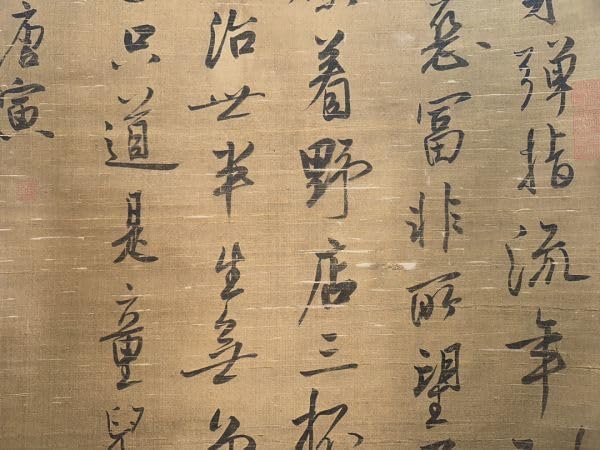 彈指流年
富非所望
着野店三杯
治世半生無
只道是童兒
唐寅